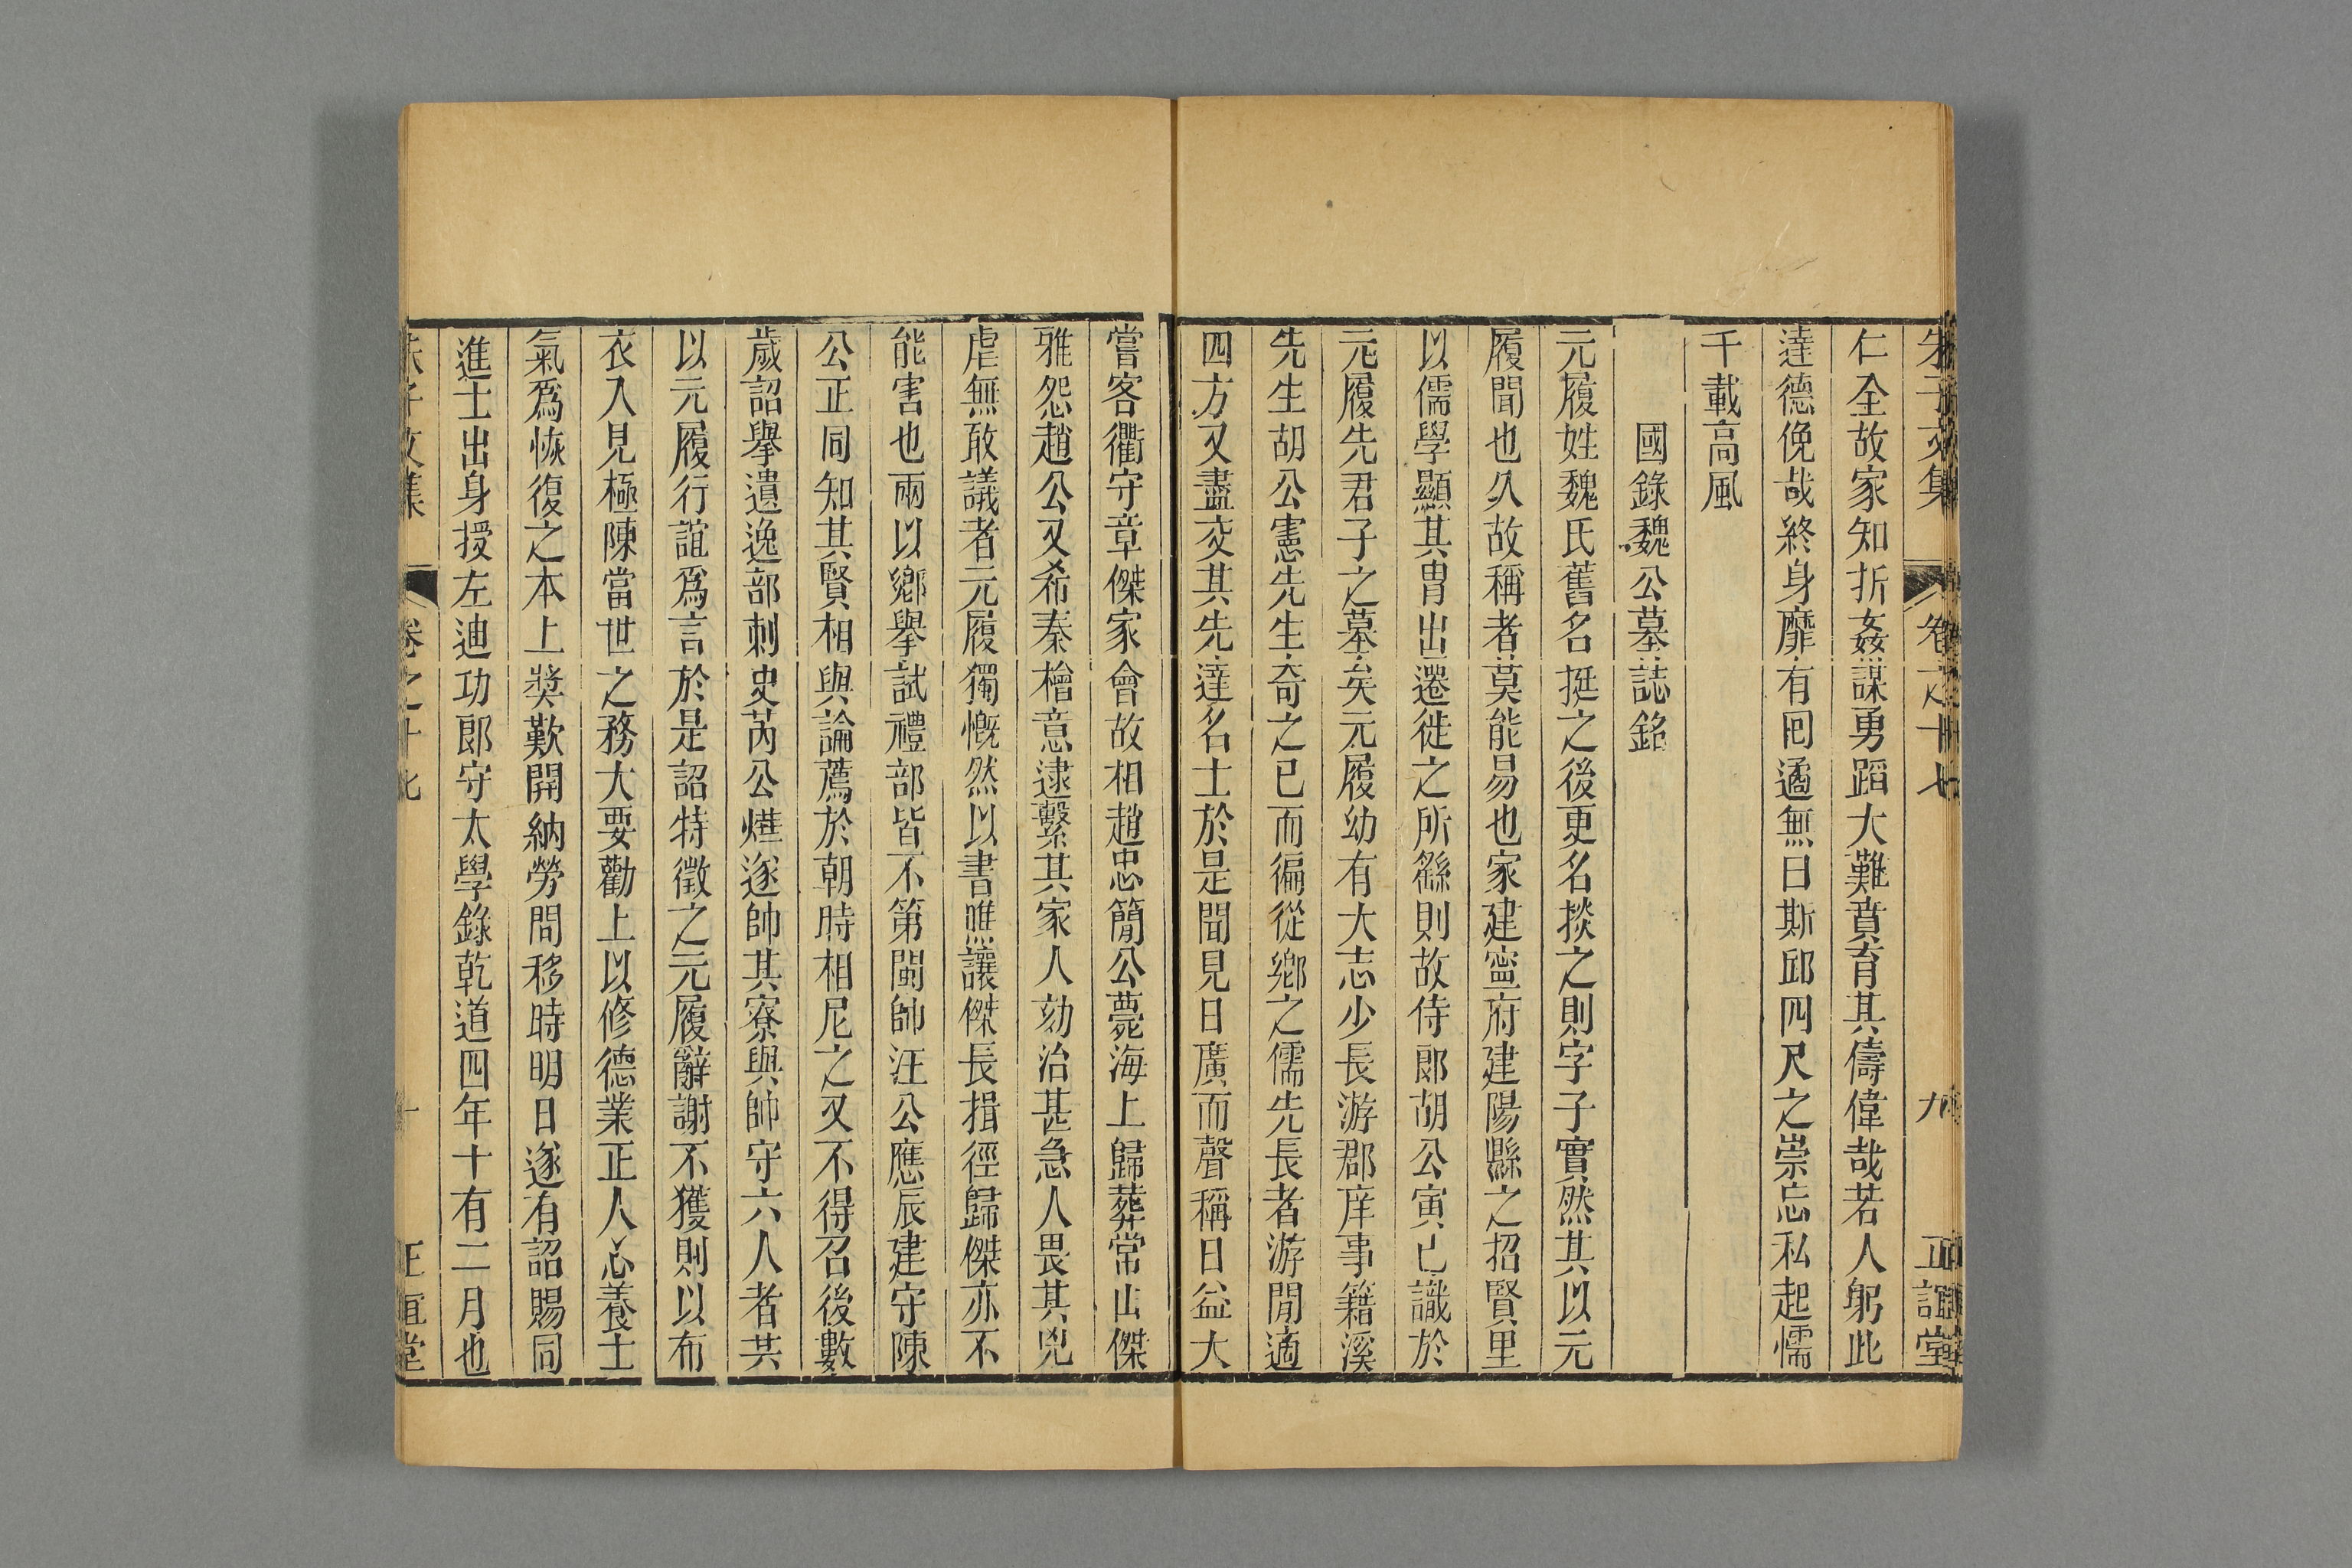 朱子文集 卷之十七 九 正誼堂
仁全故家知折姦謀勇蹈大難賁育其儔偉哉若人躬此
達德俛哉終身靡有囘遹無曰斯邱四尺之崇忘私起懦
千載高風
國錄魏公墓誌銘
元履姓魏氏舊名挺之後更名掞之則字子實然其以元
履聞也久故稱者莫能易也家建寧府建陽縣之招賢里
以儒學顯其胄出遷徙之所繇則故侍郎胡公寅已識於
元履先君子之墓矣元履幼有大志少長游郡庠事籍溪
先生胡公憲先生奇之已而徧從鄉之儒先長者游閒適
四方又盡交其先達名士於是聞見日廣而聲稱日益大
嘗客衢守章傑家會故相趙忠簡公薨海上歸葬常山傑
雅怨趙公又希秦檜意逮繫其家人劾治甚急人畏其兇
虐無敢議者元履獨慨然以書譙讓傑長揖徑歸傑亦不
能害也兩以鄉舉試禮部皆不第閩帥汪公應辰建守陳
公正同知其賢相與論薦於朝時相尼之又不得召後數
歲詔舉遺逸部刺史芮公燁遂帥其寮與帥守六人者共
以元履行誼爲言於是詔特徵之元履辭謝不獲則以布
衣入見極陳當世之務大要勸上以修德業正人心養士
氣爲恢復之本上獎歎開納勞問移時明日遂有詔賜同
進士出身授左迪功郎守太學錄乾道四年十有二月也
朱子文集 卷之十七 十 正誼堂